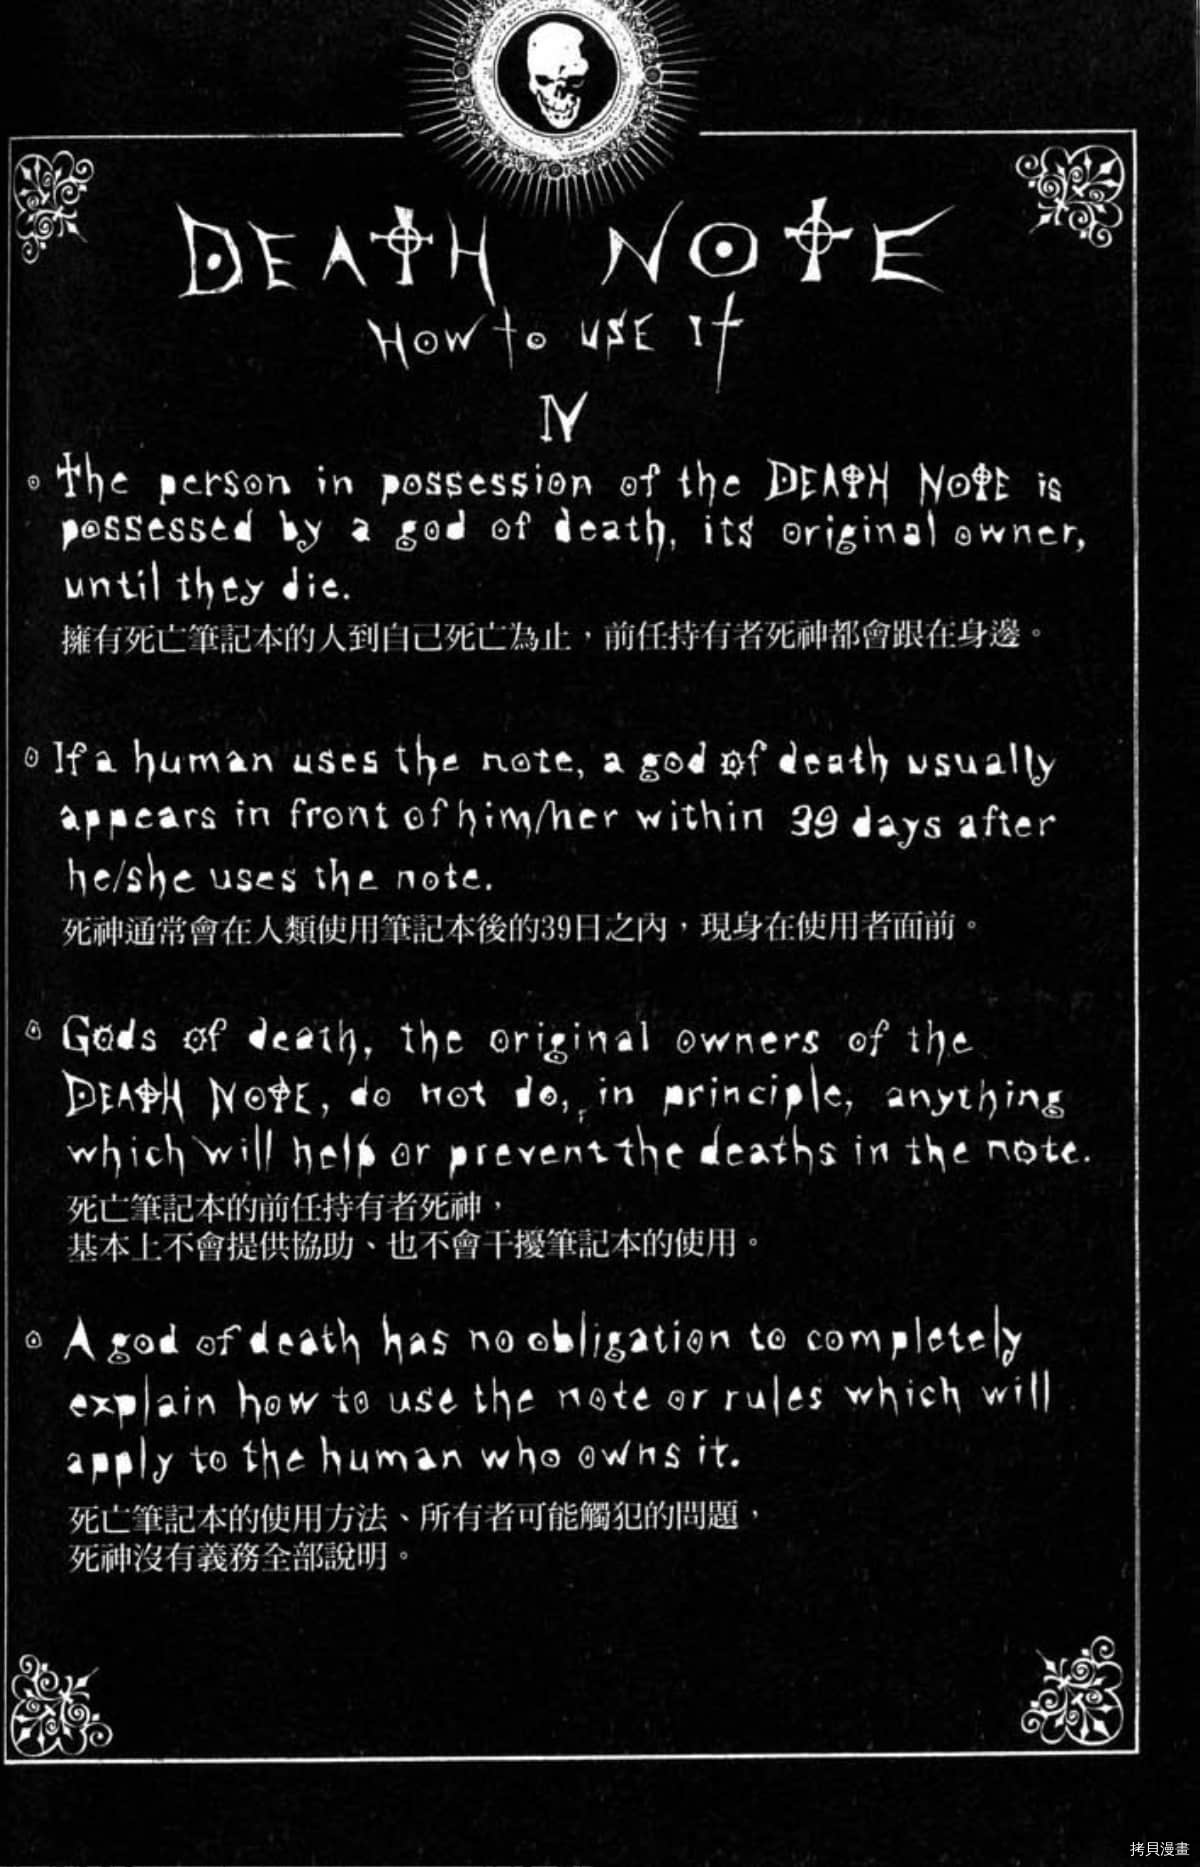 DEATH NOTE
HOW to USE It
IV
The person in possession of the DEATH NOTE is
possessed by a god of death, its original owner,
until they die.
擁有死亡筆記本的人到自己死亡為止，前任持有者死神都會跟在身邊。
If a human uses the note, a god of death usually
appears in front of him/her within 39 days after
he/she uses the note.
死神通常會在人類使用筆記本後的39日之內，現身在使用者面前。
Gods of death, the original owners of the
DEATH NOTE, do not do, in principle, anything
which will help or prevent the deaths in the note.
死亡筆記本的前任持有者死神，
基本上不會提供協助、也不會干擾筆記本的使用。
A god of death has no obligation to completely
explain how to use the note or rules which will
apply to the human who owns it.
死亡筆記本的使用方法、所有者可能觸犯的問題，
死神沒有義務全部說明。
拷貝漫畫